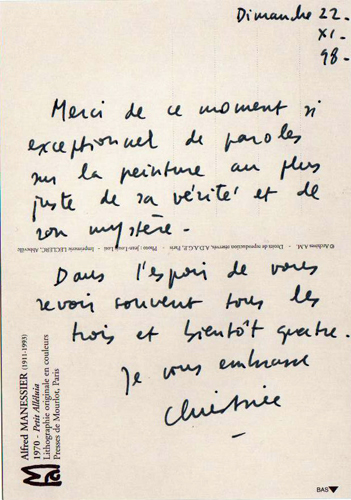 Dimanche 22
XI -
98 -
Merci de ce moment si
exceptionnel de paroles
sur la peinture au plus
juste de sa vérité et de
son mystère -
© Archives A.M. - Droits de reproduction réservés A.D.A.G.P. Paris - Photo : Jean-Louis Losi - Imprimerie LECLERC, Abbeville
Dans l'espoir de vous
revoir souvent tous les
trois et bientôt quatre.
Je vous embrasse
Christine
Alfred MANESSIER (1911-1993)
1970 - Petit Alléluia
Lithographie originale en couleurs
Presses de Mourlot, Paris
BAS